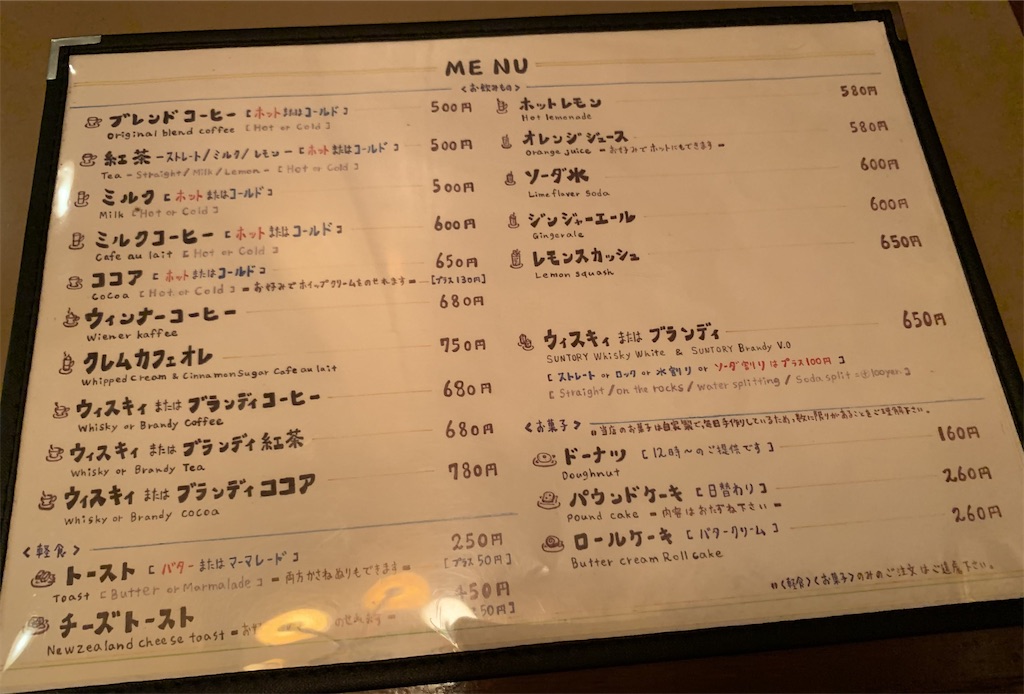 MENU
<お飲みもの>
ブレンドコーヒー [ホットまたはコールド] 500円
Original blend coffee [Hot or Cold]
紅茶 -ストレート/ミルク/レモン- [ホットまたはコールド] 500円
Tea - Straight/Milk/Lemon - [Hot or Cold]
ミルク [ホットまたはコールド] 500円
Milk [Hot or Cold]
ミルクコーヒー [ホットまたはコールド] 600円
Cafe au lait [Hot or Cold]
ココア [ホットまたはコールド] 650円
Cocoa [Hot or Cold] =お好みでホイップクリームものせれます= [プラス130円]
ウィンナーコーヒー 680円
Wiener kaffee
クレムカフェオレ 750円
Whipped cream & Cinnamon Sugar Cafe au lait
ウィスキィ または ブランディコーヒー 680円
Whisky or Brandy Coffee
ウィスキィ または ブランディ紅茶 680円
Whisky or Brandy Tea
ウィスキィ または ブランディココア 780円
Whisky or Brandy cocoa
<軽食>
トースト [バターまたはマーマレード] 250円
Toast [Butter or Marmalade] =両方かさねぬりもできます= [プラス50円]
チーズトースト 50円
Newzealand cheese toast =お のせれます= 50円]
ホットレモン 580円
Hot lemonade
オレンジジュース 580円
Orange juice =お好みでホットにもできます=
ソーダ氷 600円
Lime flaver Soda
ジンジャーエール 600円
Gingerale
レモンスカッシュ 650円
Lemon squash
ウィスキィ または ブランディ 650円
SUNTORY Whisky White & SUNTORY Brandy V.O
[ストレート or ロック or 水割り or ソーダ割りはプラス100円]
[Straight/on the rocks/water splitting/Soda split=⊕100yen]
<お菓子> "当店のお菓子は自家製で、毎日手作りしているため、数に限りがあることをご理解下さい。
ドーナツ [12時〜のご提供です] 160円
Doughnut
パウンドケーキ [日替わり] 260円
Pound cake =内容はおたずね下さい=
ロールケーキ [バタークリーム] 260円
Butter cream Roll cake
"<軽食><お菓子>のみのご注文はご遠慮下さい。